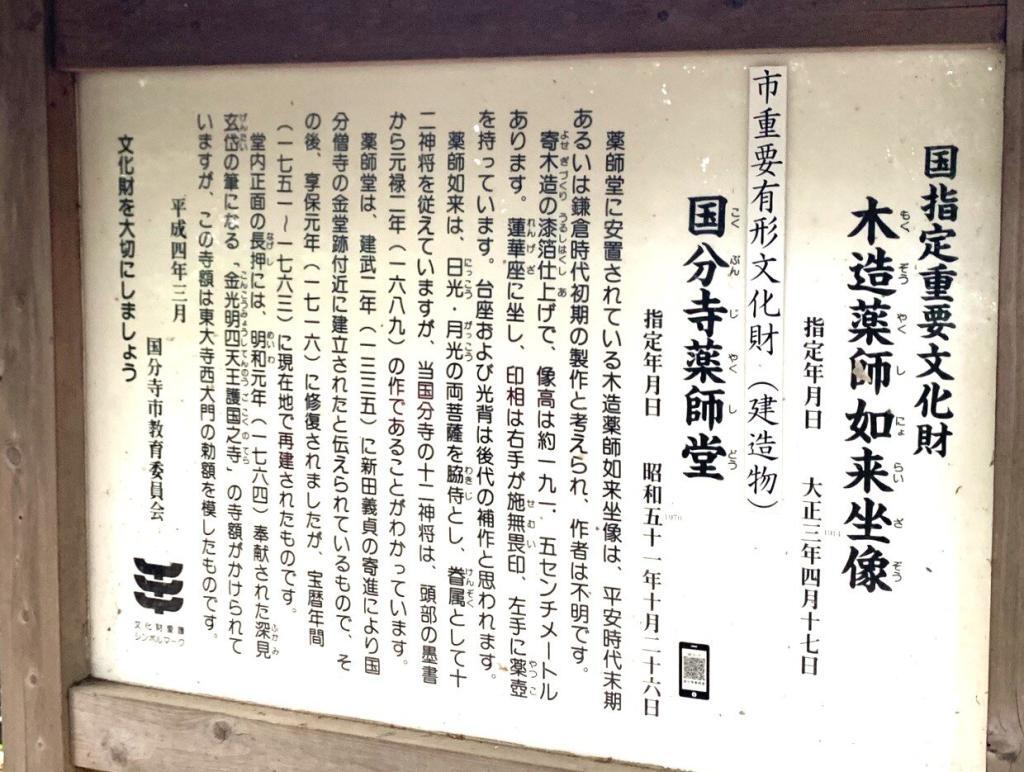 国指定重要文化財
木造薬師如来坐像
もくぞうやくしにょらいざぞう
指定年月日　大正三年四月十七日
1914
市重要有形文化財（建造物）
国分寺薬師堂
こくぶんじやくしどう
指定年月日　昭和五十一年十月二十六日
1976
薬師堂に安置されている木造薬師如来坐像は、平安時代末期
あるいは鎌倉時代初期の製作と考えられ、作者は不明です。
寄木造の漆箔仕上げで、像高は約一九一、五センチメートル
よせぎづくり　うるしはくしあ
あります。蓮華座に坐し、印相は右手が施無畏印、左手に薬壺
れんげざ　せむい　やっこ
を持っています。台座および光背は後代の補作と思われます。
薬師如来は、日光・月光の両菩薩を脇侍とし、眷属として十
にっこう　がっこう　わきじ　けんぞく
二神将を従えていますが、当国分寺の十二神将は、頭部の墨書
から元禄二年（一六八九）の作であることがわかっています。
薬師堂は、建武二年（一三三五）に新田義貞の寄進により国
分僧寺の金堂跡付近に建立されたと伝えられているもので、そ
の後、享保元年（一七一六）に修復されましたが、宝暦年間
（一七五一～一七六三）に現在地で再建されたものです。
堂内正面の長押には、明和元年（一七六四）奉献された深見
なげし　めいわ　ふかみ
玄岱の筆になる「金光明四天王護国之寺」の寺額がかけられて
げんたい　こんこうみょうしてんのうごこくのてら
いますが、この寺額は東大寺西大門の勅額を模したものです。
平成四年三月
国分寺市教育委員会
文化財を大切にしましょう
文化財愛護
シンボルマーク